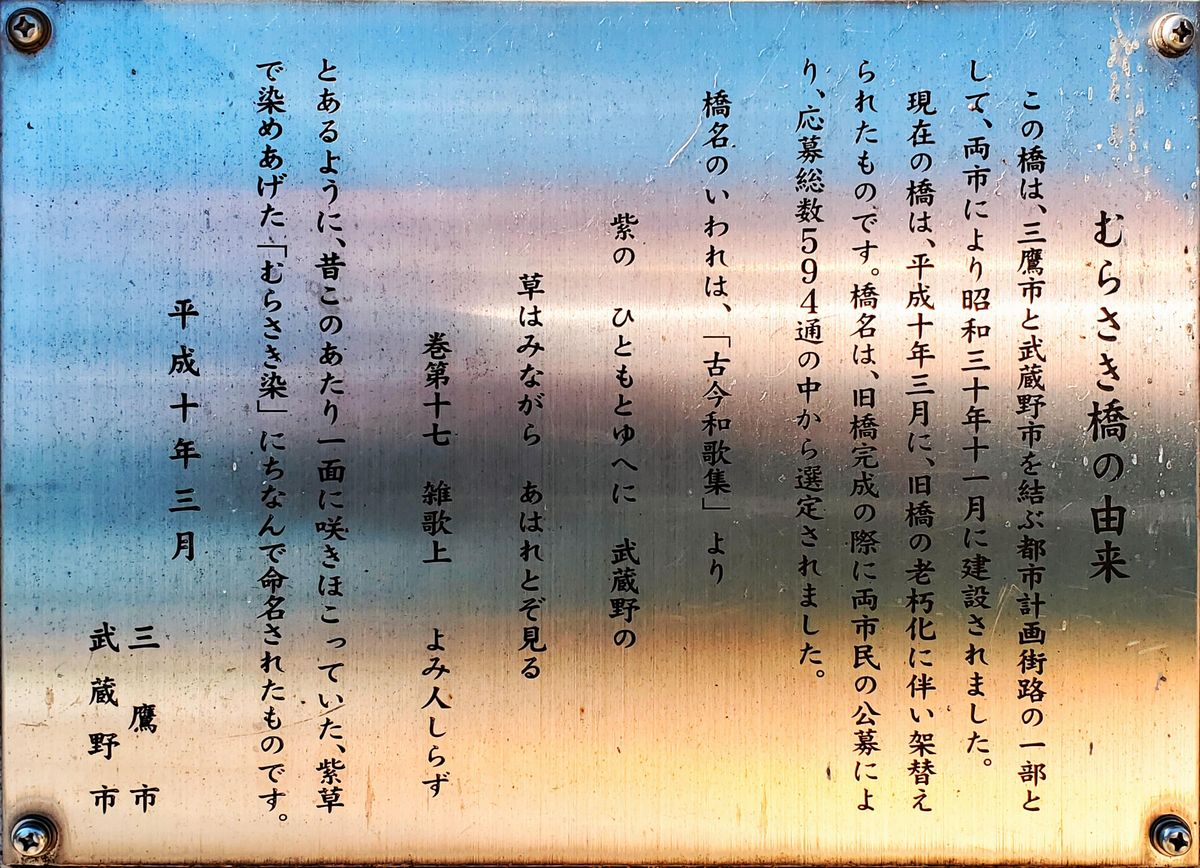 むらさき橋の由来
この橋は、三鷹市と武蔵野市を結ぶ都市計画街路の一部と
して、両市により昭和三十年十一月に建設されました。
現在の橋は、平成十年三月に、旧橋の老朽化に伴い架替え
られたものです。橋名は、旧橋完成の際に両市民の公募によ
り、応募総数594通の中から選定されました。
橋名のいわれは、「古今和歌集」より
紫の　ひともとゆへに　武蔵野の
草はみながら　あはれとぞ見る
巻第十七　雑歌上　よみ人しらず
とあるように、昔このあたり一面に咲きほこっていた、紫草
で染めあげた「むらさき染」にちなんで命名されたものです。
平成十年三月
三鷹市
武蔵野市